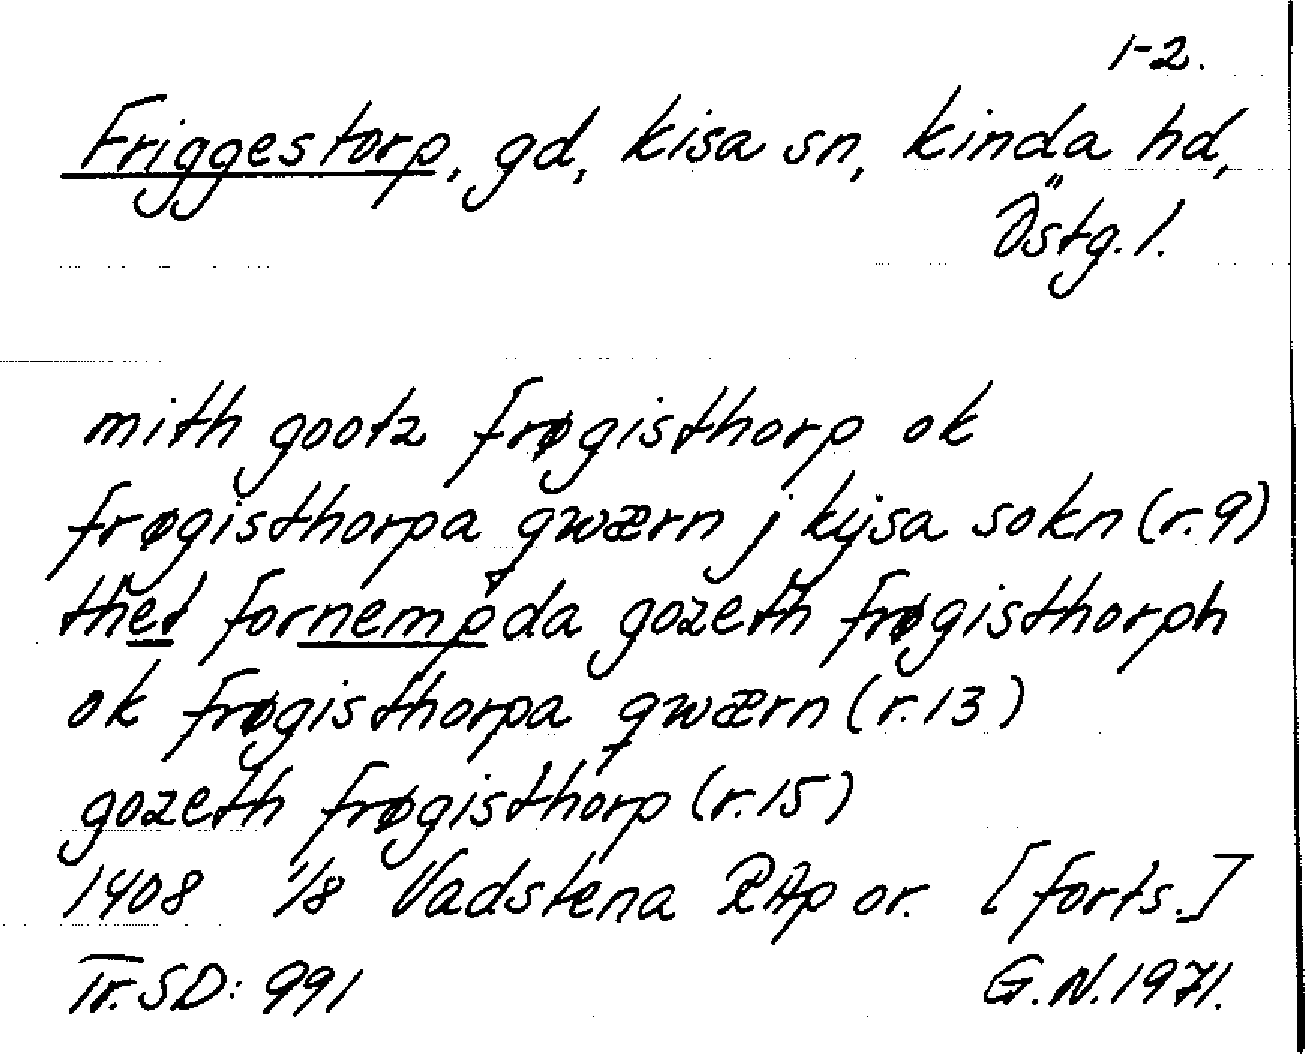 1-2.
Friggestorp, gd, Kisa sn, Kinda hd,
Östg. l.
mith gootz frøgisthorp ok
frøgisthorpa qwærn j kyssa sokn (r. 9)
thet fornempda gozeth frøgisthorph
ok frøgisthorpa qwærn (r. 13)
gozeth frøgisthorp (r. 15)
1408 1/8 Vadstena RAp or. [forts.]
Tr. SD: 991 G. N. 1971.